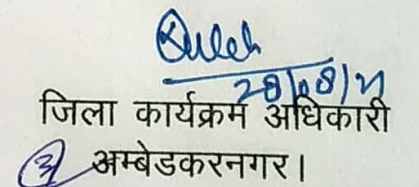 28/08/21
जिला कार्यक्रम अधिकारी
अम्बेडकरनगर।